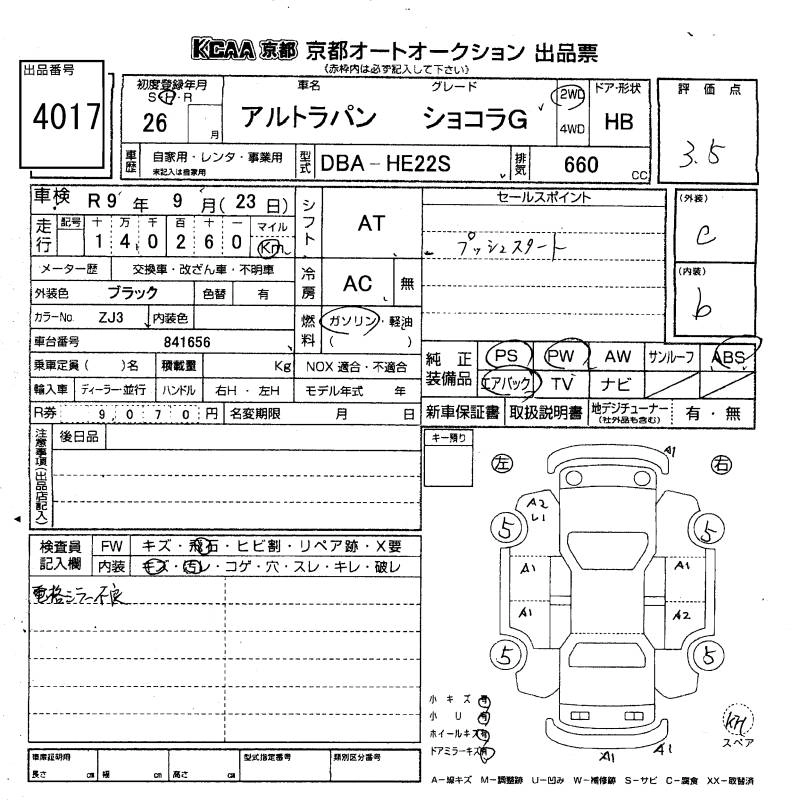 KCAA 京都 京都オートオークション 出品票
(赤枠内は必ず記入して下さい)
出品番号
4017
初度登録年月 車名 グレード 2WD ドア・形状
S・H・R
26 月 アルトラパン ショコラG 4WD HB
車歴 自家用・レンタ・事業用 型式 DBA-HE22S 排気 660 CC
未記入は自家用
評価点
3.5
車検 R 9 年 9 月(23日) シフト AT
走行 記号 十 万 千 百 十 一 マイル
1 4 0 2 6 0 Km
メーター歴 交換車・改ざん車・不明車 冷房 AC 無
外装色 ブラック 色替 有
カラーNo. ZJ3 内装色 燃料 ガソリン・軽油
( )
車台番号 841656
乗車定員( )名 積載量 Kg NOX 適合・不適合
輸入車 ディーラー・並行 ハンドル 右H・左H モデル年式 年
R券 9,070円 名変期限 月 日
セールスポイント
プッシュスタート
(外装)
C
(内装)
b
純正装備品 PS PW AW サンルーフ ABS
エアバック TV ナビ
新車保証書 取扱説明書 地デジチューナー(社外品も含む) 有・無
注意事項(出品店記入) 後日品
検査員記入欄 FW キズ・飛石・ヒビ割・リペア跡・X要
内装 キズ・汚レ・コゲ・穴・スレ・キレ・破レ
電格ミラー不良
車庫証明用 型式指定番号 類別区分番号
長さ cm 幅 cm 高さ cm
キー預り
左 右
A1
A2
U1
5 5
A1 A1
A1 A2
5 5
A1 A1
小キズ 有
小U 有
ホイールキズ 有
ドアミラーキズ 有
KH
スペア
A-線キズ M-調整跡 U-凹み W-補修跡 S-サビ C-腐食 XX-取替済